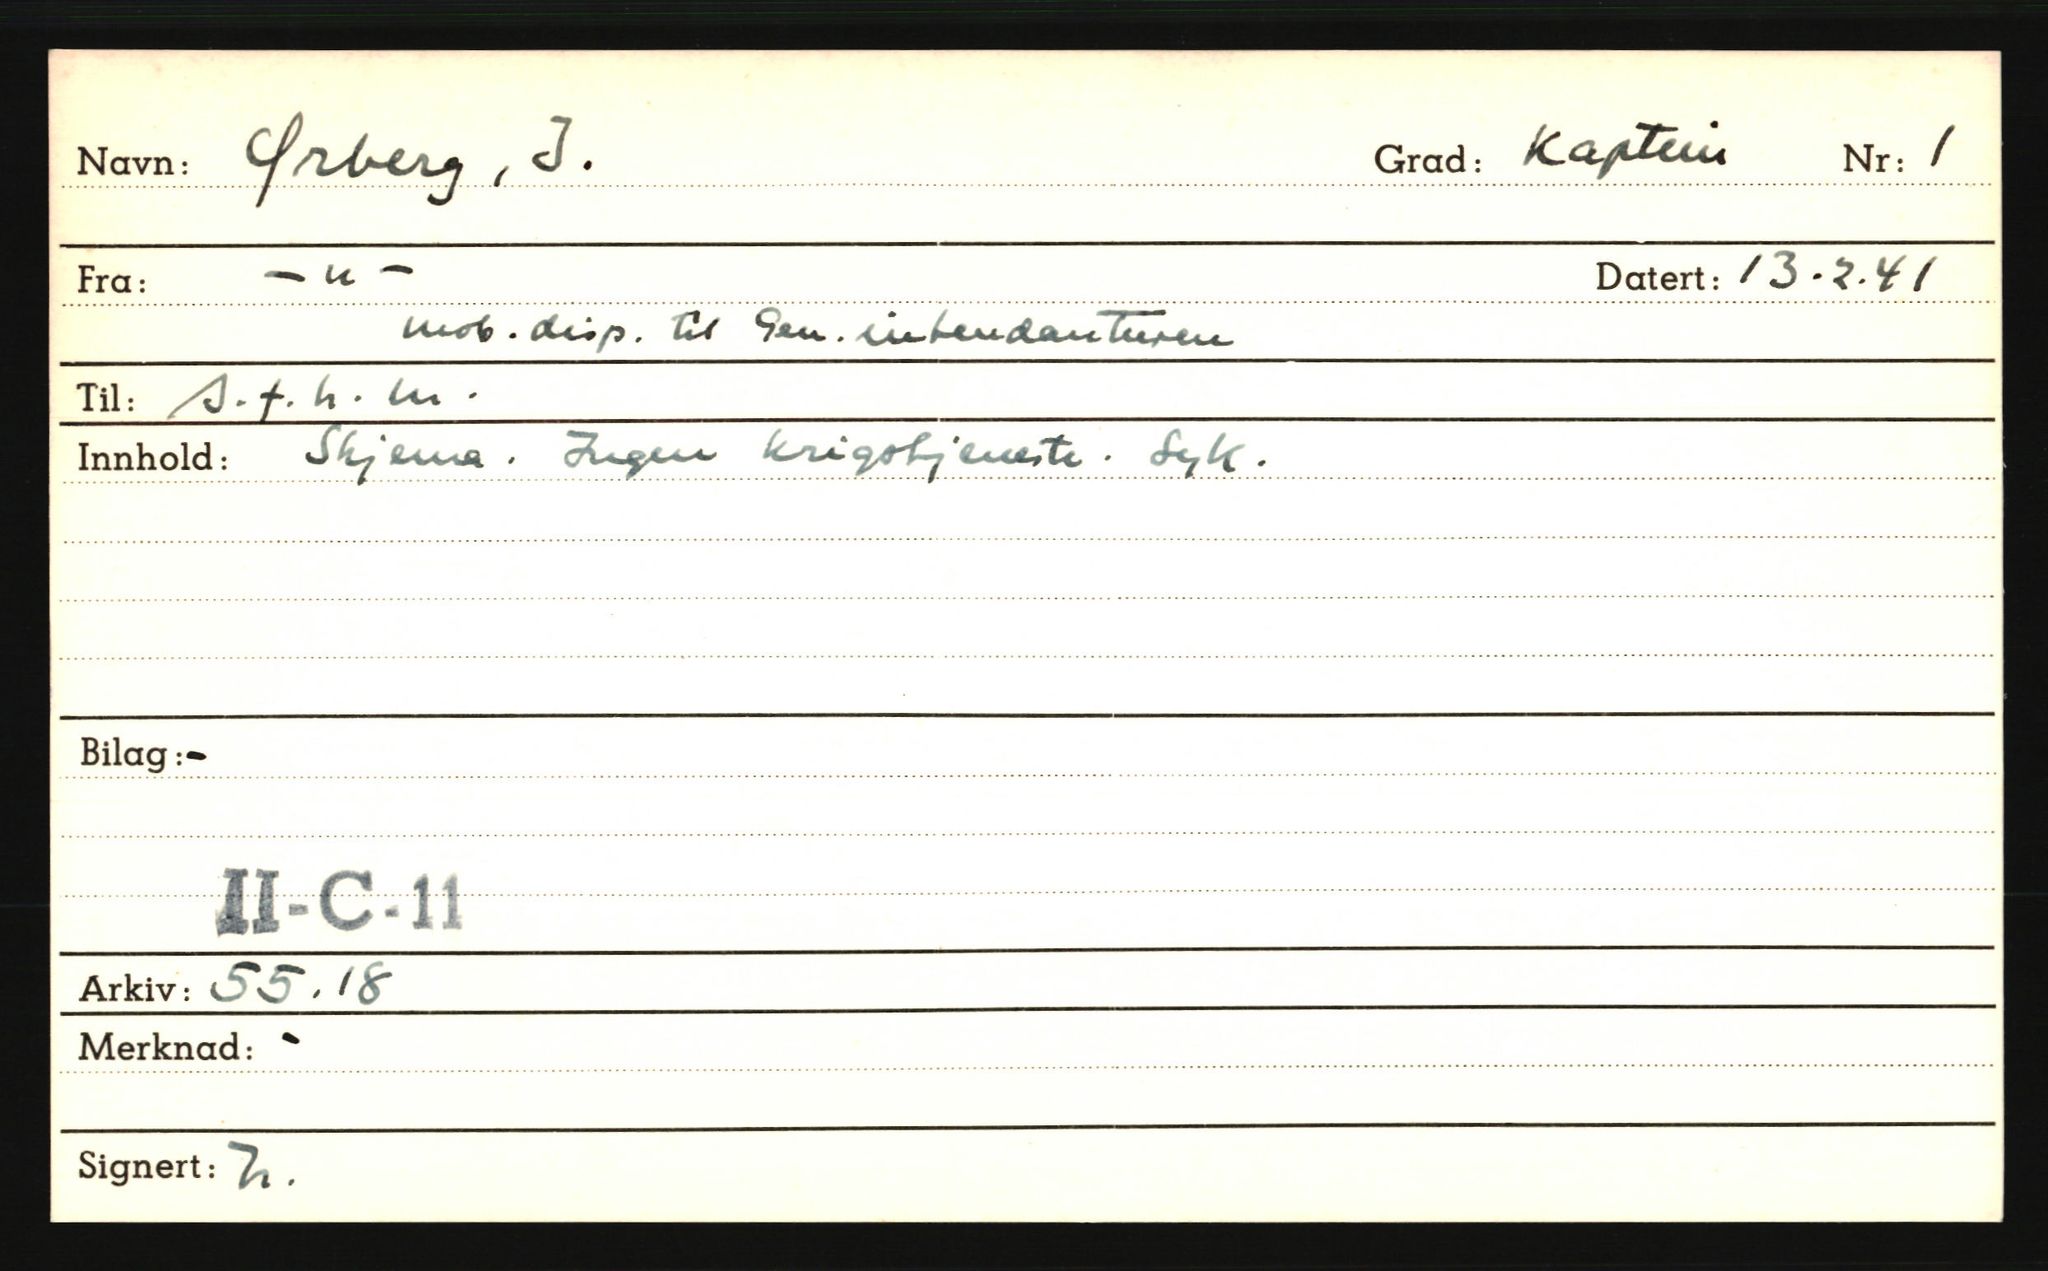 Navn: Ørberg, J. Grad: Kaptein Nr: 1
Fra: -"- Datert: 13.2.41
mob. disp. til Gen. intendanturen
Til: S.f.h.m.
Innhold: Skjema. Ingen krigstjeneste. Syk.
Bilag: -
II-C-11
Arkiv: 55.18
Merknad: -
Signert: h.